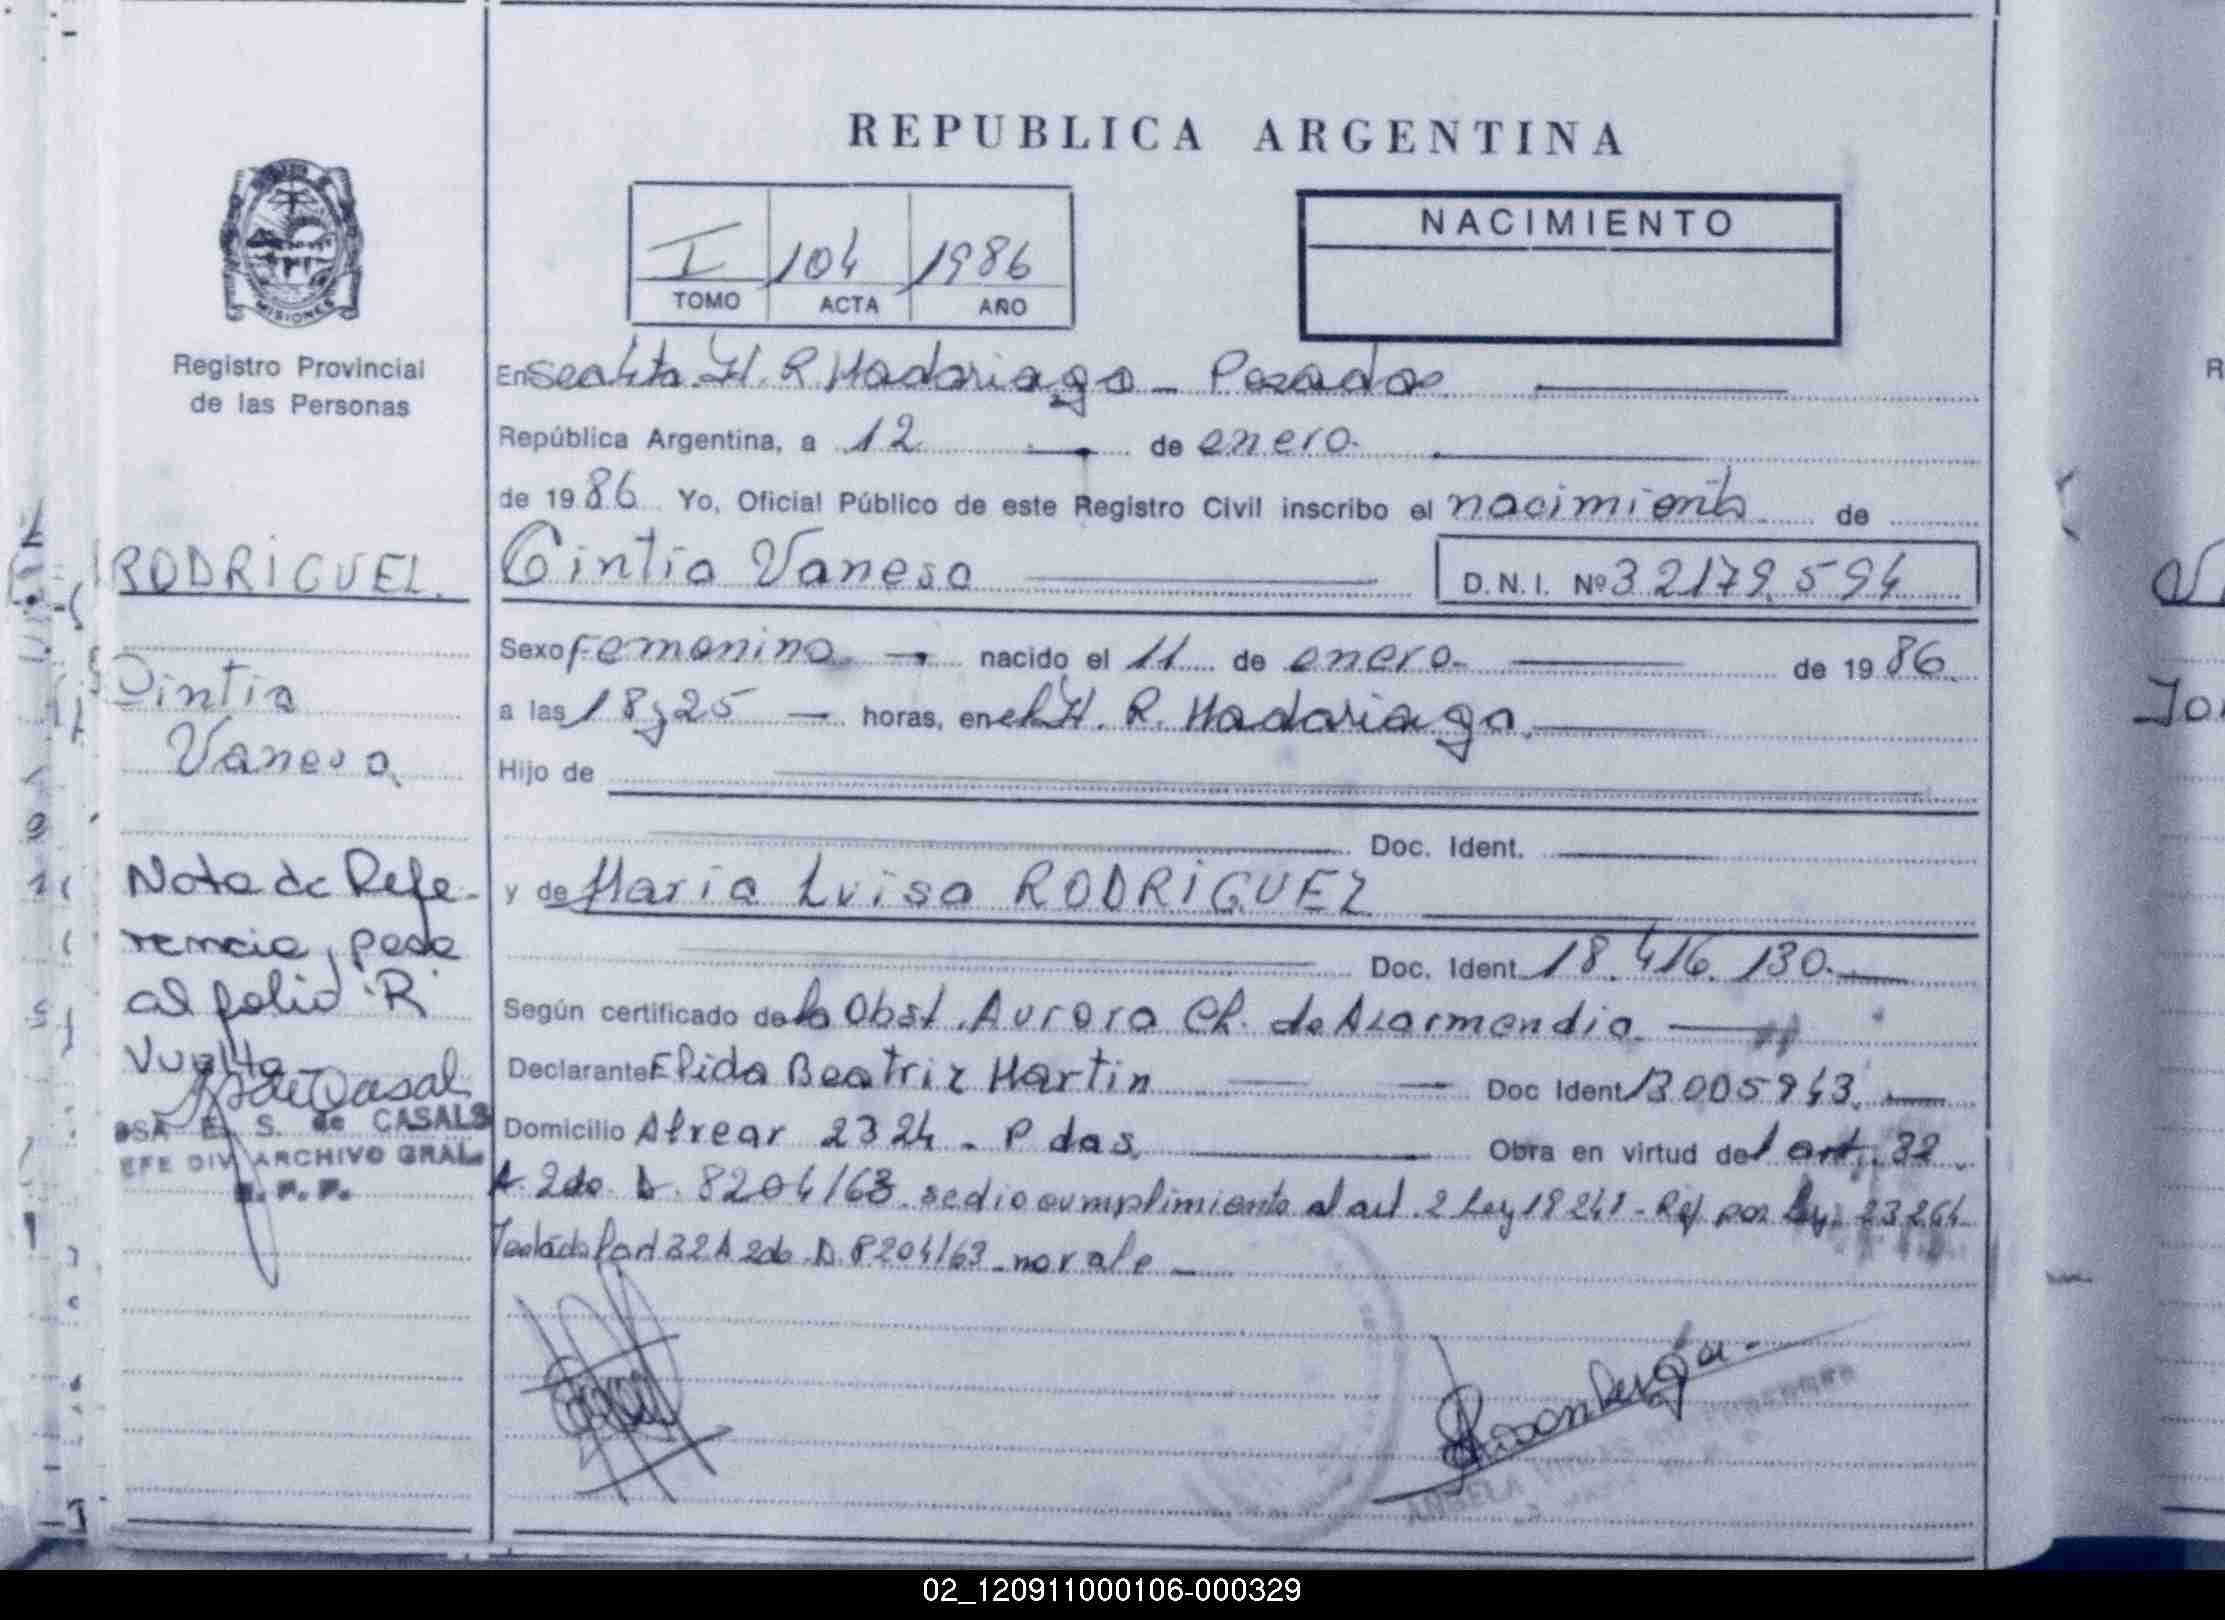 REPUBLICA ARGENTINA
I 104 1986
TOMO ACTA AÑO
NACIMIENTO
MISIONES
Registro Provincial
de las Personas
RODRIGUEZ.
Cintia
Vanesa
Nota de Refe-
rencia, pasa
al folio "R"
Vuelta
E. S. de CASALS
DIV. ARCHIVO GRAL.
R. P. P.
En H. R. Madariaga - Posadas
República Argentina, a 12 de enero
de 1986 Yo, Oficial Público de este Registro Civil inscribo el nacimiento de
Cintia Vanesa D. N. I. Nº 32179.594
Sexo Femenino nacido el 11 de enero de 1986
a las 18 y 25 horas, en el H. R. Madariaga.
Hijo de
Doc. Ident.
y de Maria Luisa RODRIGUEZ
Doc. Ident. 18.416.130.
Según certificado de la Obst. Aurora Ch. de Azarmendia
Declarante Elida Beatriz Martin Doc Ident 13005943.
Domicilio Alvear 2324 - Pdas. Obra en virtud del art. 32
A. 2do. D. 8204/63. se dio cumplimiento al art. 2 Ley 18248 - Ref por Ley. 23264
Testado l'art 32 A 2do. D. 8204/63 - no vale -
ANGELA
R
02_120911000106-000329